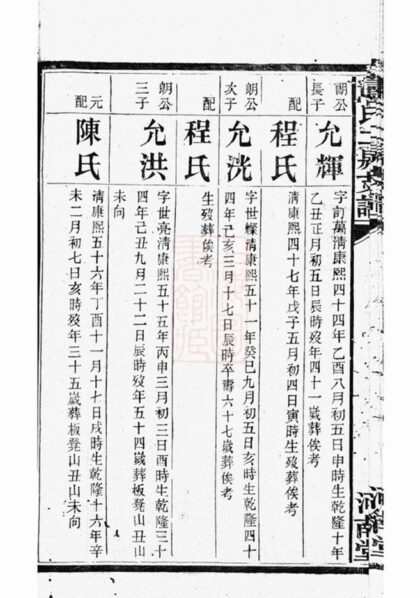 朗公
長子
允輝
字前萬清康熙四十四年乙酉八月初五日申時生乾隆十年
乙丑正月初五日辰時歿年四十一歲葬俟考
配
程氏
清康熙四十七年戊子五月初四日寅時生歿葬俟考
朗公
次子
允洸
字世燦清康熙五十一年癸巳九月初五日亥時生乾隆四十
四年己亥三月十七日辰時卒壽六十七歲葬俟考
配
程氏
生歿葬俟考
朗公
三子
允洪
字世亮清康熙五十五年丙申三月初三日酉時生乾隆三十
四年己丑九月二十二日辰時歿年五十四歲葬板凳山丑山
未向
元
配
陳氏
清康熙五十六年丁酉十一月十七日戌時生乾隆十六年辛
未二月初七日亥時歿年三十五歲葬板凳山丑山未向
河南堂